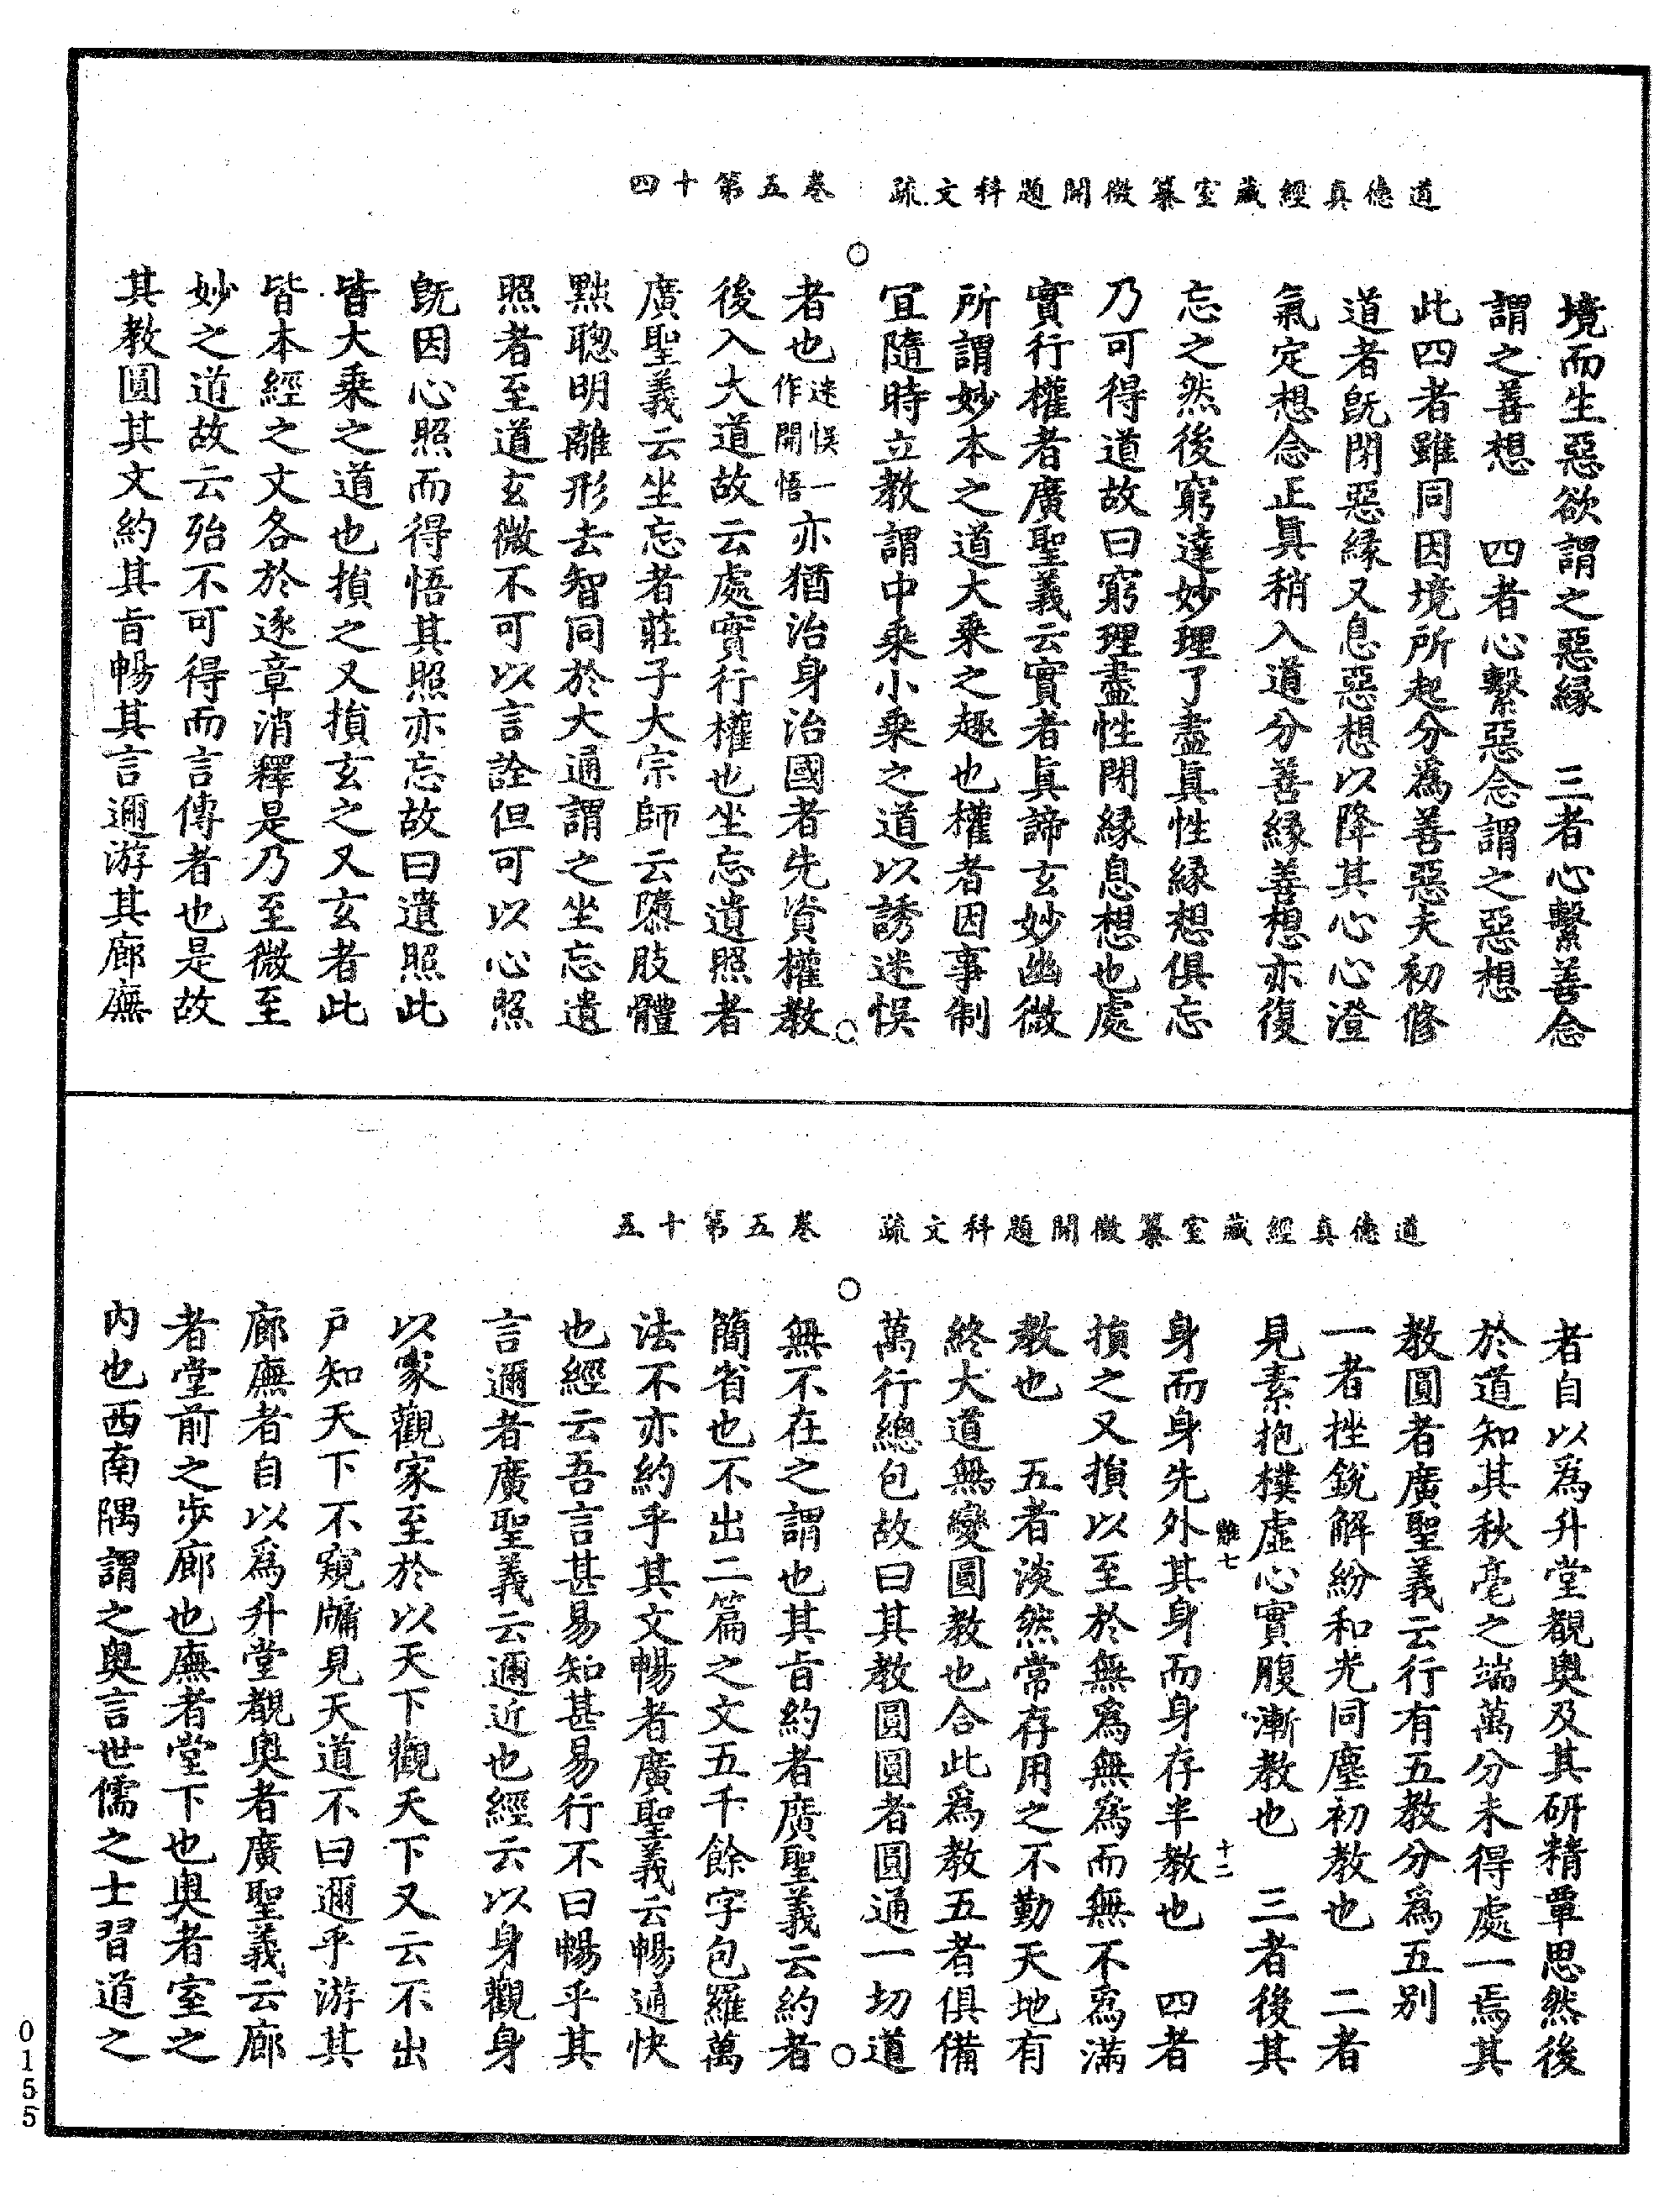 道德真經藏室纂微開題科文疏 卷五第十四
境而生惡欲謂之惡緣　三者心繫善念
謂之善想　四者心繫惡念謂之惡想
此四者雖同因境所起分為善惡夫初修
道者既閉惡緣又息惡想以降其心心澄
氣定想念正真稍入道分善緣善想亦復
忘之然後窮達妙理了盡真性緣想俱忘
乃可得道故曰窮理盡性閉緣息想也處
實行權者廣聖義云實者真諦玄妙幽微
所謂妙本之道大乘之趣也權者因事制
宜隨時立教謂中乘小乘之道以誘迷悞
者也迷悞一作開悟亦猶治身治國者先資權教
後入大道故云處實行權也坐忘遺照者
廣聖義云坐忘者莊子大宗師云隳肢體
黜聰明離形去智同於大通謂之坐忘遺
照者至道玄微不可以言詮但可以心照
既因心照而得悟其照亦忘故曰遺照此
皆大乘之道也損之又損玄之又玄者此
皆本經之文各於逐章消釋是乃至微至
妙之道故云殆不可得而言傳者也是故
其教圓其文約其旨暢其言邇游其廊廡
道德真經藏室纂微開題科文疏 卷五第十五
者自以為升堂覩奧及其研精覃思然後
於道知其秋毫之端萬分未得處一焉其
教圓者廣聖義云行有五教分為五別
一者挫銳解紛和光同塵初教也　二者
見素抱樸虛心實腹漸教也　三者後其
難七　十二
身而身先外其身而身存半教也　四者
損之又損以至於無為無為而無不為滿
教也　五者淡然常存用之不勤天地有
終大道無變圓教也合此為教五者俱備
萬行總包故曰其教圓圓者圓通一切道
無不在之謂也其旨約者廣聖義云約者
簡省也不出二篇之文五千餘字包羅萬
法不亦約乎其文暢者廣聖義云暢通快
也經云吾言甚易知甚易行不曰暢乎其
言邇者廣聖義云邇近也經云以身觀身
以家觀家至於以天下觀天下又云不出
戶知天下不窺牖見天道不曰邇乎游其
廊廡者自以為升堂覩奧者廣聖義云廊
者堂前之步廊也廡者堂下也奧者室之
內也西南隅謂之奧言世儒之士習道之
0155